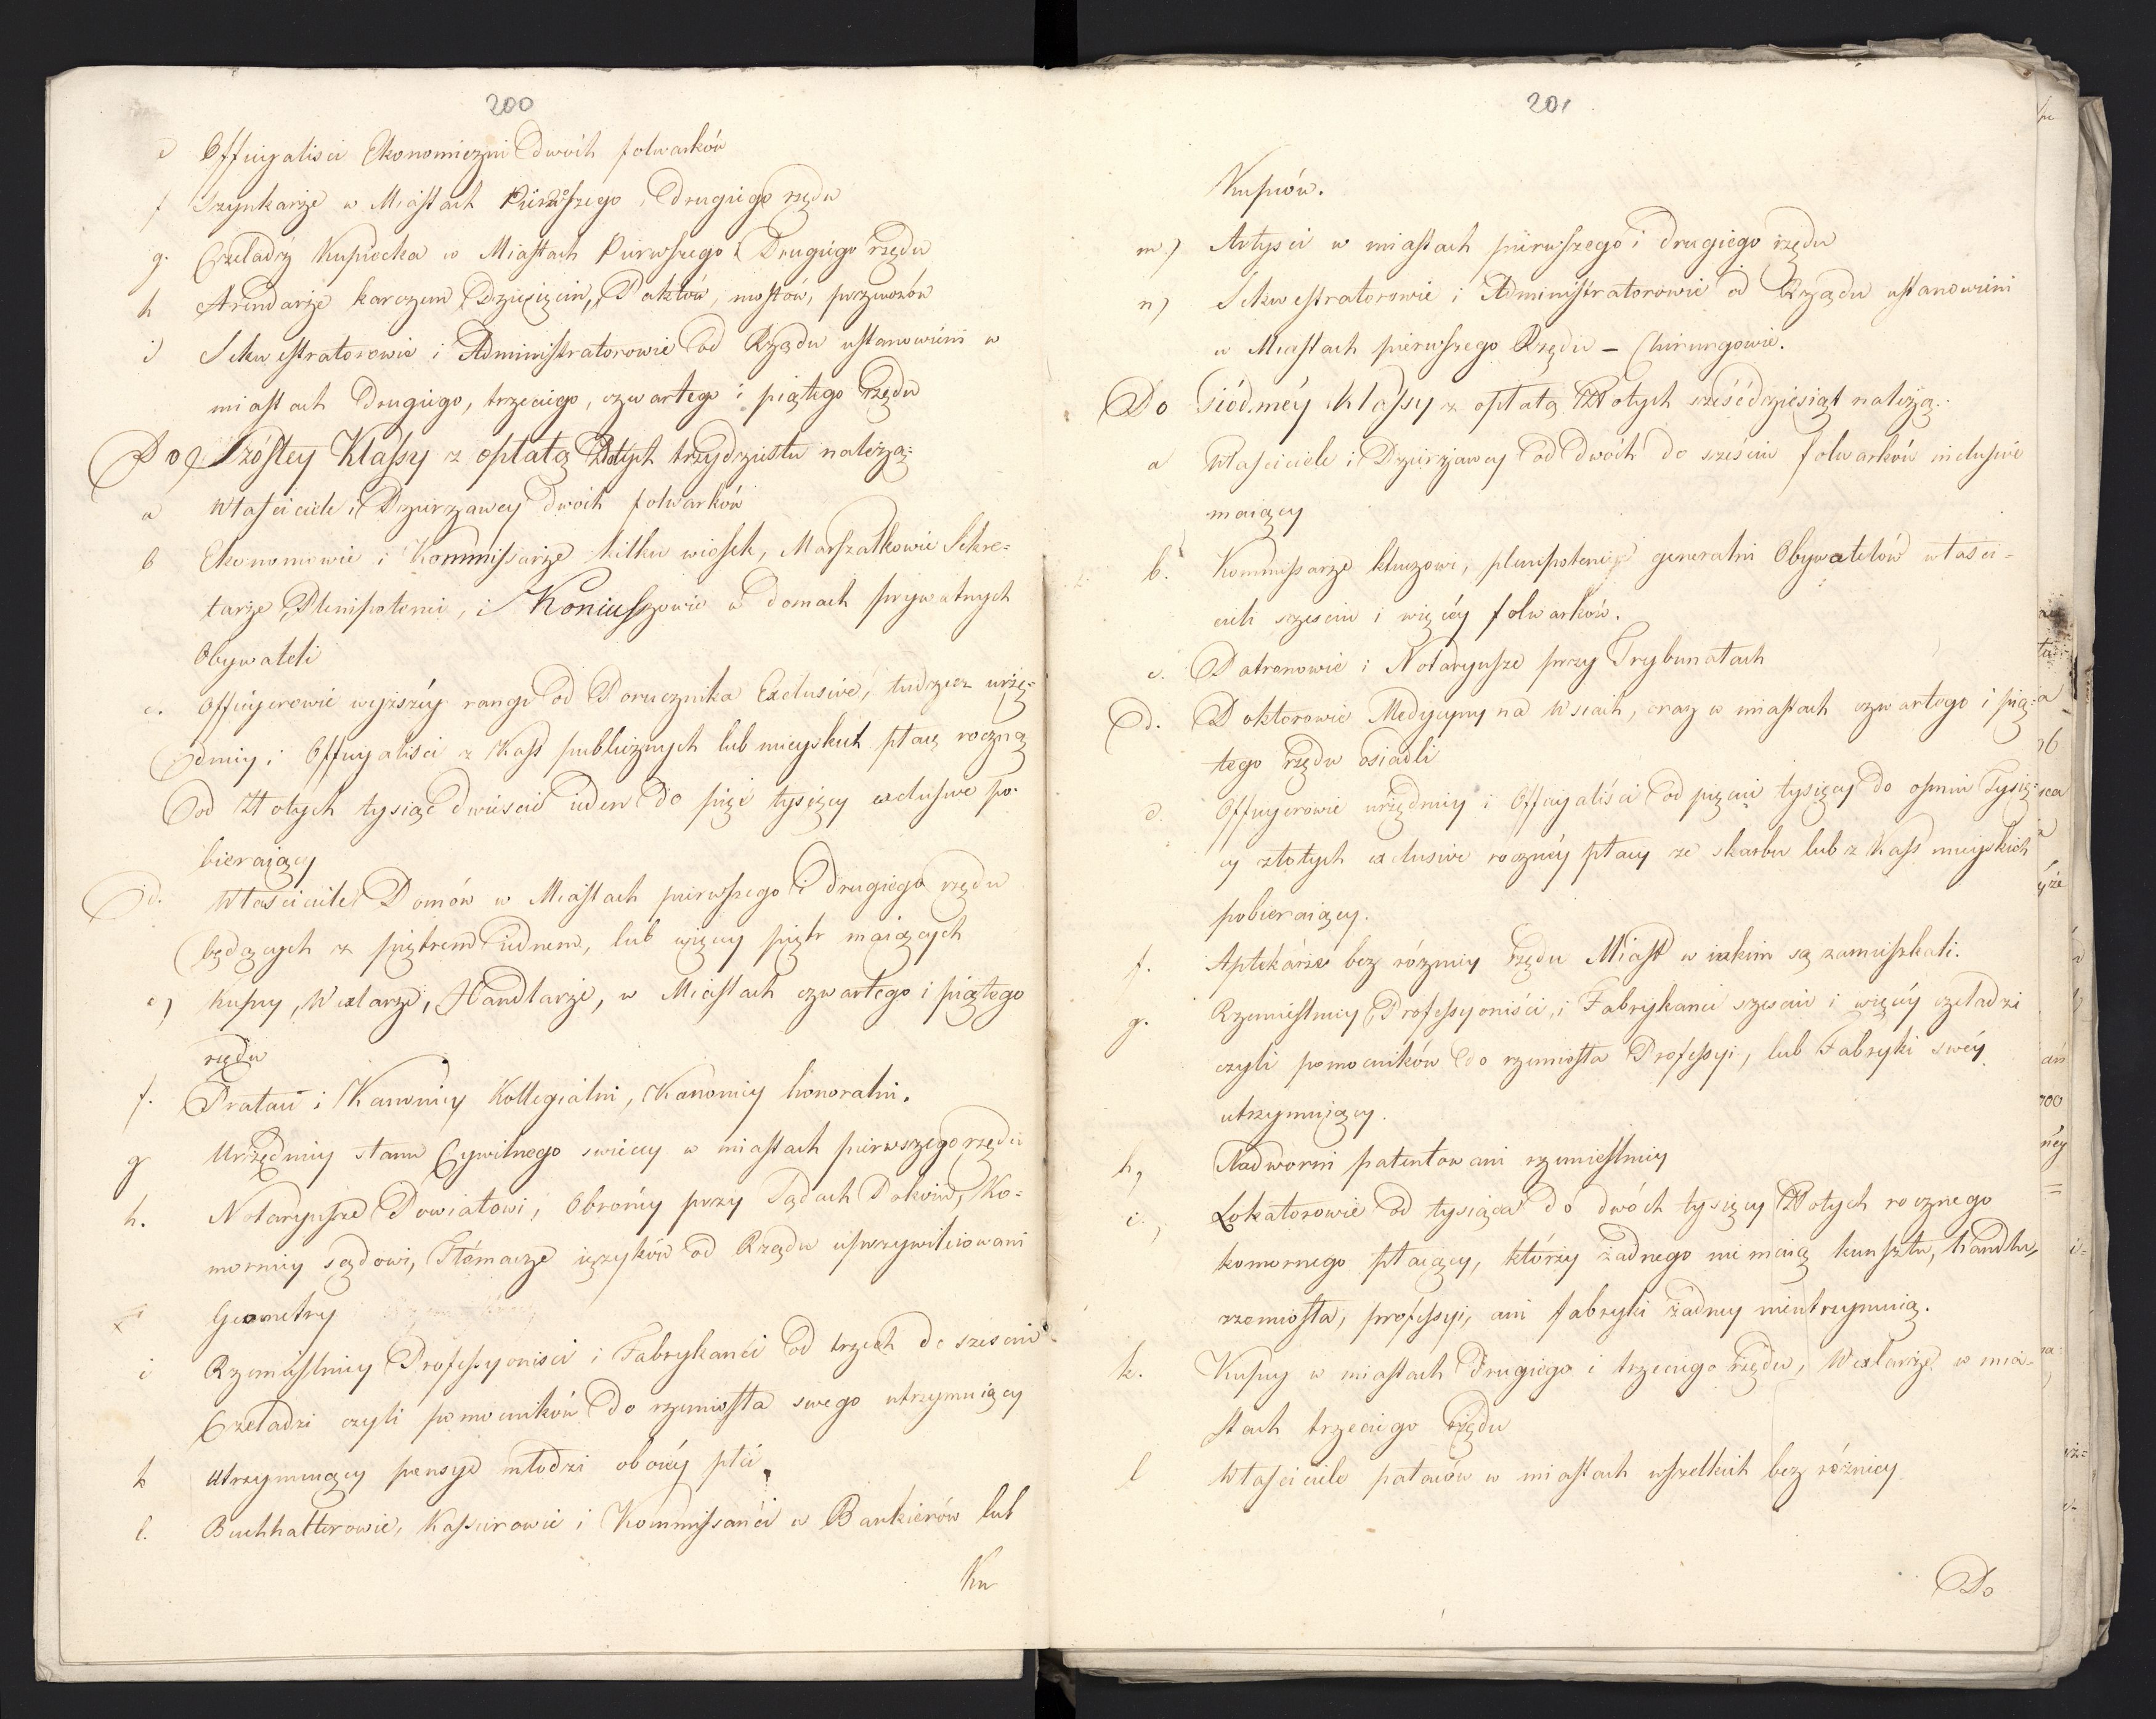 200
e Officyaliści Ekonomiczni dwóch folwarków
f Szynkarze w Miastach Pierwszego i Drugiego rzędu
g. Czeladź Kupiecka w Miastach Pierwszego i Drugiego rzędu
h Arendarze karczem Dziesięcin, Paktów, mostów, przewozów
i) Sekwestratorowie i Administratorowie od Rządu ustanowieni w
miastach drugiego, trzeciego, czwartego i piątego Rzędu
Do Szóstey Klassy z opłatą Złotych trzydziestu należą:
a Właściciele i Dzierżawcy dwóch folwarków
b Ekonomowie i Kommissarze kilku wiosek, Marszałkowie Sekre=
tarze, Plenipotenci, i Koniuszowie w domach prywatnych
Obywateli
c. Officyerowie wyższéy rangi od Porucznika Exclusive, tudzież urzę=
dnicy i Officyaliści z Kass publicznych lub mieyskich płacę roczną
od Złotych tysiąc dwieście ieden do pięć tysięcy exclusive po=
bieraiący
d. Właściciele Domów w Miastach pierwszego i drugiego rzędu
będących z piętrem iednem, lub więcey piętr maiących
e) Kupcy, Wexlarze, Handlarze, w Miastach czwartego i piątego
rzędu
f. Prałaci i Kanonicy Kollegialni, Kanonicy honoralni.
g Urzędnicy stanu Cywilnego świeccy w miastach pierwszego rzędu
h. Notaryusze Powiatowi, Obrońcy przy Sądach Pokoiu, Ko=
mornicy sądowi, Tłómacze ięzyków od Rządu uprzywileiowani
Geometry
i Rzemieślnicy Professyoniści i Fabrykanci od trzech do sześciu
Czeladzi czyli pomocników do rzemiosła swego utrzymuiący
k Utrzymuiący pensye młodzi oboiéy płci.
l. Buchhalterowie, Kassierowie i Kommissanci u Bankierów lub
Ku
201
Kupców.
m) Artyści w miastach pierwszego i drugiego rzędu
n) Sekwestratorowie i Administratorowie od Rządu ustanowieni
w Miastach pierwszego Rzędu – Chirurgowie.
Do Siódméy Klassy z opłatą Złotych sześćdziesiąt należą:
a Właściciele i Dzierżawcy od dwóch do sześciu folwarków inclusive
maiący
b. Kommissarze kluczowi, plenipotenci generalni Obywatelów właści=
cieli sześciu i więcéy folwarków.
c. Patronowie i Notaryusze przy Trybunałach
d. Doktorowie Medycyny na Wsiach, oraz w miastach czwartego i pią=
tego rzędu osiadli
e. Officyerowie urzędnicy i Officyaliści od pięciu tysięcy do ośmiu Tysię=
cy złotych exclusive rocznéy płacy ze skarbu lub z Kass mieyskich
pobieraiący.
f. Aptekarze bez różnicy rzędu Miast w iakim są zamieszkali.
g. Rzemieślnicy Professyoniści, i Fabrykanci sześciu i więcéy czeladzi
czyli pomocników do rzemiosła Professyi, lub Fabryki swéy
utrzymuiący.
h, Nadworni patentowani rzemieślnicy
i., Lokatorowie od tysiąca do dwóch tysięcy Złotych rocznego
komornego płacący, którzy żadnego nie maią kunsztu, handlu,
rzemiosła, professyi, ani fabryki żadney nieutrzymuią.
k. Kupcy w miastach Drugiego i trzeciego rzędu, Wexlarze w mia=
stach trzeciego rzędu
l Właściciele pałaców w miastach wszelkich bez różnicy
Do